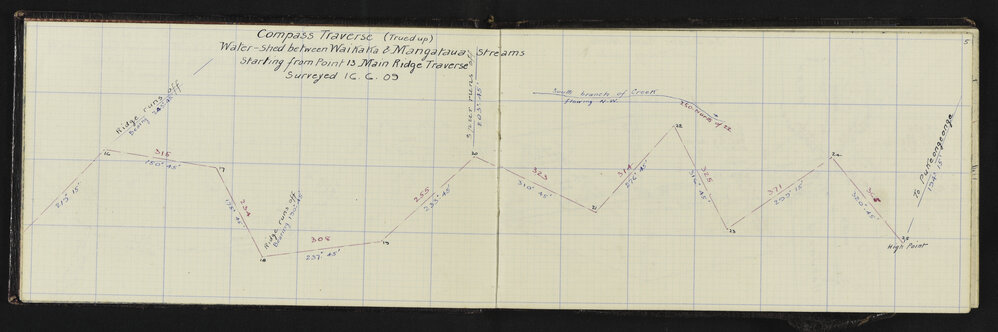 5
Compass Traverse (Trued up)
Water-shed between Waikaka & Mangataua Streams
Starting from Point 13 Main Ridge Traverse
Surveyed 16.6.09
Ridge runs off
bearing
16
315
17
234
Ridge runs off
Bearing
18
308
237° 45'
19
255
233° 45'
Spur runs off
203° 45'
20
323
310° 45'
21
South branch of Creek
flowing N.W.
314
276° 45'
22
325
316° 45'
23
371
24
320° 45'
35
High Point
To Pukeongaonga
194° 15'
213° 15'